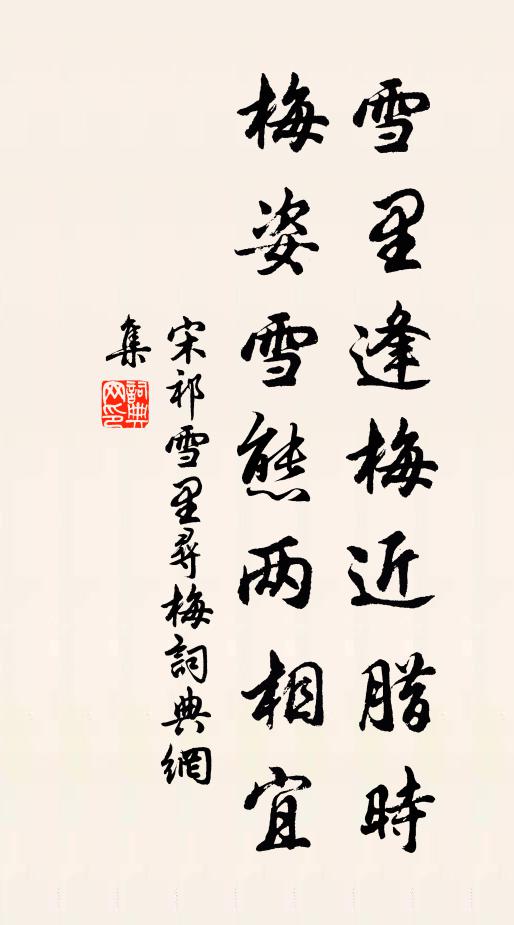 雪里逢梅近腊時
梅姿雪態两相宜
宋祁雪里尋梅詞典網
集
詞典網印